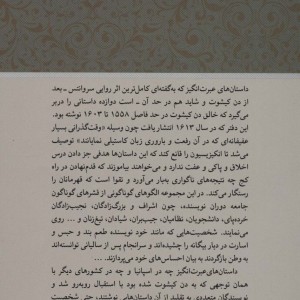 داستان‌های عبرت‌انگیز که به‌گفته‌ای کامل‌ترین اثر روایی سروانتس ـ بعد
از دن کیشوت و شاید هم در حد آن ـ است دوازده داستانی را دربر
می‌گیرد که خالق دن کیشوت در حد فاصل ۱۵۵۸ تا ۱۶۰۳ نوشته بود.
این دفتر که در سال ۱۶۱۳ انتشار یافت چون وسیله «وقت‌گذرانی بسیار
عفیفانه‌ای که در آن رفعت و باروری زبان کاستیلی نمایانند» توصیف
می‌شد تا انکیزیسیون را قانع کند که این داستان‌ها هدفی جز دادن درس
اخلاق و پاکی و عفت ندارد و می‌خواهند بیاموزند که قدم‌نهادن در راه
کج چه نتیجه‌های ناگواری ببار می‌آورد و تقوا است که قهرمانان را
رستگار می‌کند. در این مجموعه الگوهای گوناگونی از قشرهای گوناگون
جامعه دوران نویسنده، چون اشراف و بزرگ‌زادگان، نجیب‌زادگان
خرده‌پای، دانشجویان، نظامیان، جیب‌بران، شیادان، تیغ‌زنان و ... روی
می‌نمایند. شخصیت‌هایی که مانند خود نویسنده طعم بند و حبس و
اسارت در دیار بیگانه را چشیده‌اند و سرانجام پس از سالیانی توانسته‌اند
به وطن بازگردند به بیان احساس‌های خود می‌پردازند...
داستان‌های‌عبرت‌انگیز چه در اسپانیا و چه در کشورهای دیگر با
همان توجهی که به دن کیشوت شده بود با استقبال روبه‌رو شد و
نویسندگان متعددی به تقلید از آن داستان‌هایی نوشتند، حتی شخصیت